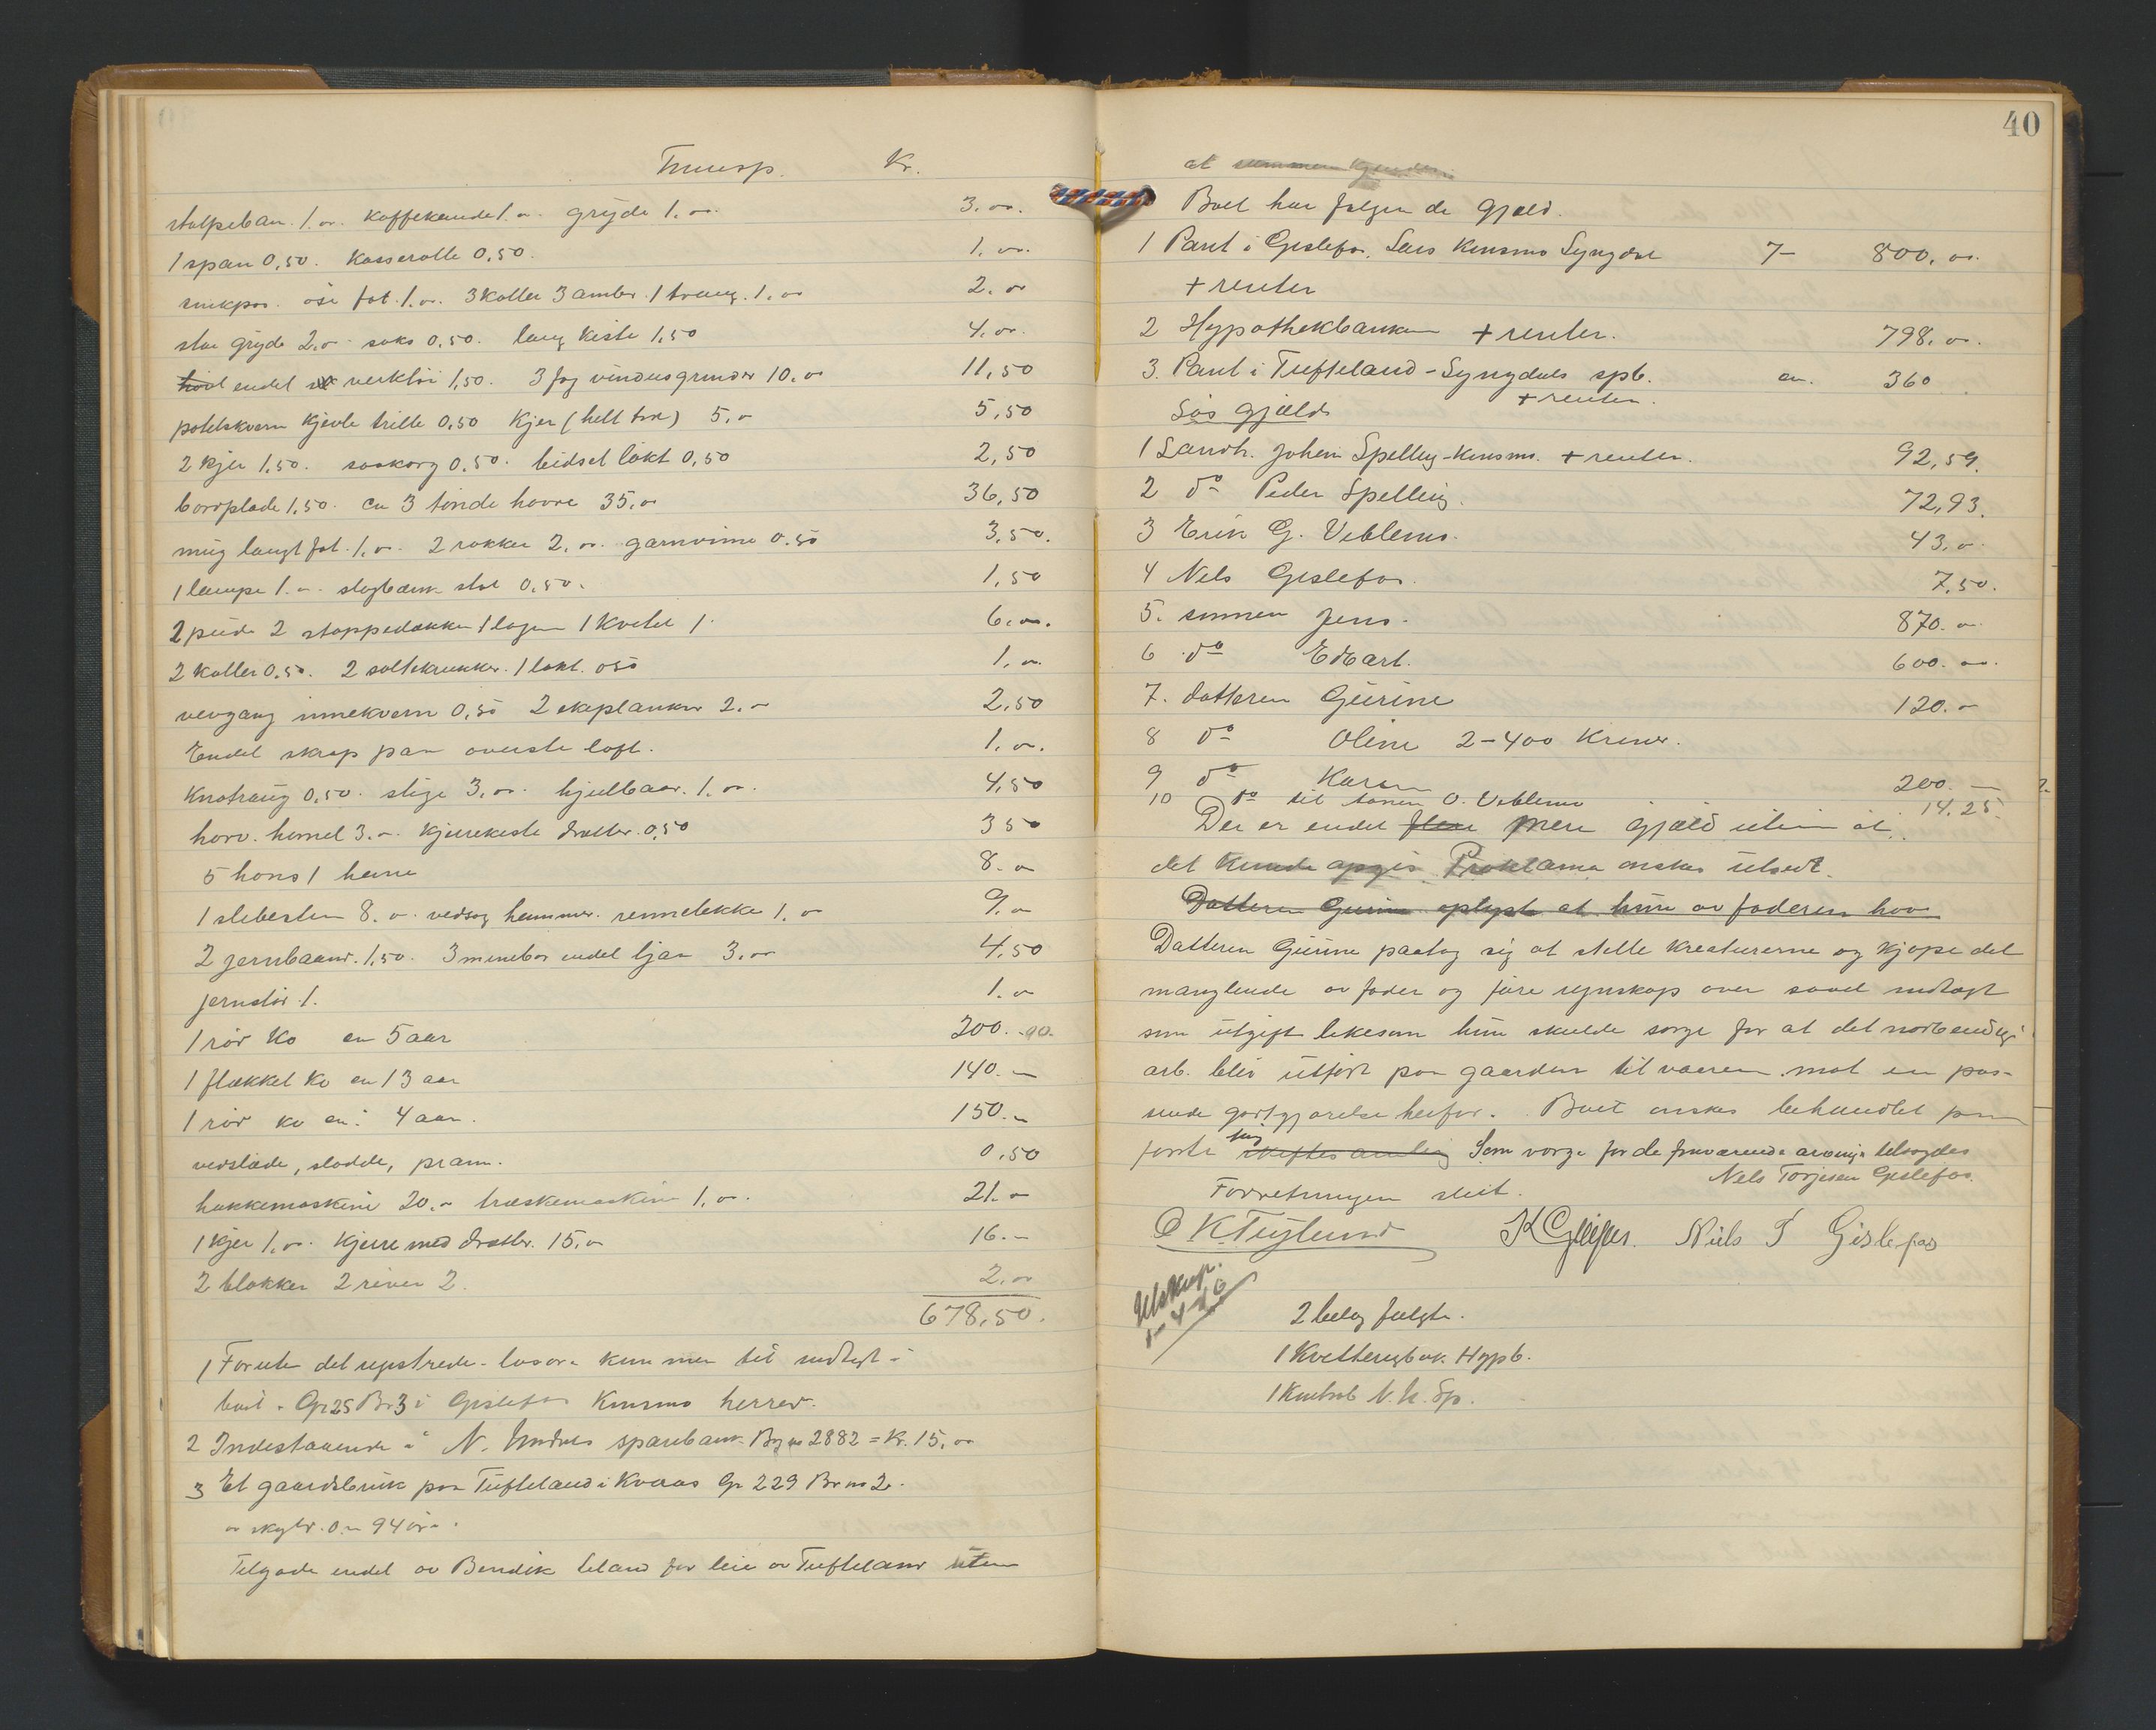 Transp. Kr.
stolpeban. 1.00. Kaffekande 1.00. gryde 1.00. 3.00.
1 span 0,50. Kasserolle 0,50. 1.00.
fat 1.00. 3 koller 3 amber 1 traug. 1.00 2.00
stor gryde 2.00 saks 0,50. lang kiste 1,50 4.00.
endel verktöi 1,50. 3 fag vinduesgrinder 10.00 11,50
potetskvern kjevle trille 0,50 Kjer (helt tre) 5.00 5,50
2 kjer 1,50. saakorg 0,50. beidsel lökt 0,50 2,50
bordplade 1,50. ca 3 tönde havre 35.00 36,50
langt fat. 1.00. 2 rokker 2.00. garnvinne 0.50 3,50.
1 lampe 1.00. slagbænk stol 0,50. 1,50
2 puder 2 stoppedækken 1 lagen 1 kvitel 6.00.
2 Koller 0.50. 2 saltekrukker. 1 lökt. 050 1.00.
vevgang 0,50 2 ekeplanker 2.00 2,50
Endel skrap paa överste loft. 1.00.
Knotraug 0,50. stige 3.00. hjulbaar. 1.00. 4,50
horv. hemel 3.00. Kjærrekiste drætter. 0,50 3 50
5 höns 1 hane 8.00
1 slibesten 8.00. vedsag hammer. rennelekke 1.00 9.00
2 jernbaand. 1,50. 3 minebor endel ljaa 3.00 4,50
jernstör 1. 1.00
1 röd Ko ca 5 aar 200.00.
1 flekket Ko ca 13 aar 140.00
1 röd ko ca: 4 aar. 150.00
vedslæde, slodde, pram. 0,50
hakkemaskine 20.00 træskemaskine 1.00. 21.00
1 Kjer 1.00. Kjerre med drætter. 15.00 16.00
2 blokker 2 river 2. 2.00
678,50.
1 Foruten det registrerte lösöre kun men til indtægt i
boet. Gr 25 Br 3 i Gislefos Kinsmo herred.
2 Indestaaende i N. Undals sparebank Bog no 2882 = Kr. 15.00
3 Et gaardsbruk paa Tufteland i Kvaas Gr 229 Br no 2.
av skyld. 0.00 94 öre.
Tilgode endel av Bendik Eeland for leie av Tufteland uten
40
at
Boet har fölgende gjæld.
1 Pant i Gislefos. Lars Kinsmo Lyngdal 7- 800.00.
+ renter
2 Hypothekbanken + renter. 798.00.
3. Pant i Tufteland - Lyngdals spb. ca. 360
+ renter.
Lös gjæld
1 Landh. Johan Spelling - Kinsmo. + renter. 92,59.
2 do Peder Spelling. 72,93.
3 Erik G. Veblemo. 43.00
4 Nels Gislefos. 7,50.
5. sönnen Jens. 870.00
6 do Edvart. 600.00.
7. datteren Gurine 120.00
8 do Oline 2-400 Kroner.
9 do Karen 200.
10 do til O. Veblemo 14,25.
Der er endel flere mere gjæld uten at
det kunde opgis Proklama önskes utsedt.
Datteren Gurine oplyste at hun av faderen hos
Datteren Gurine paatog sig at stelle kreaturerne og kjöpe det
manglende av foder og före regnskap over saavel indtægt
som utgift likesom hun skulde sörge for at det nödvendige
arb. blev utfört paa gaarden til vaaren mot en pas-
sende godtgjörelse herfor. Boet önskes behandlet paa
Som verge for de fraværende arvinger tilsagdes
Nels Torjesen Gislefos.
Forretningen slut.
O K. Fuglund K Gislefos. Niels T Gislefos
Utskrap.
2 bilag fulgte.
1 Kvitteringsbok Hypb.
1 Kontrab N. U. Sp.